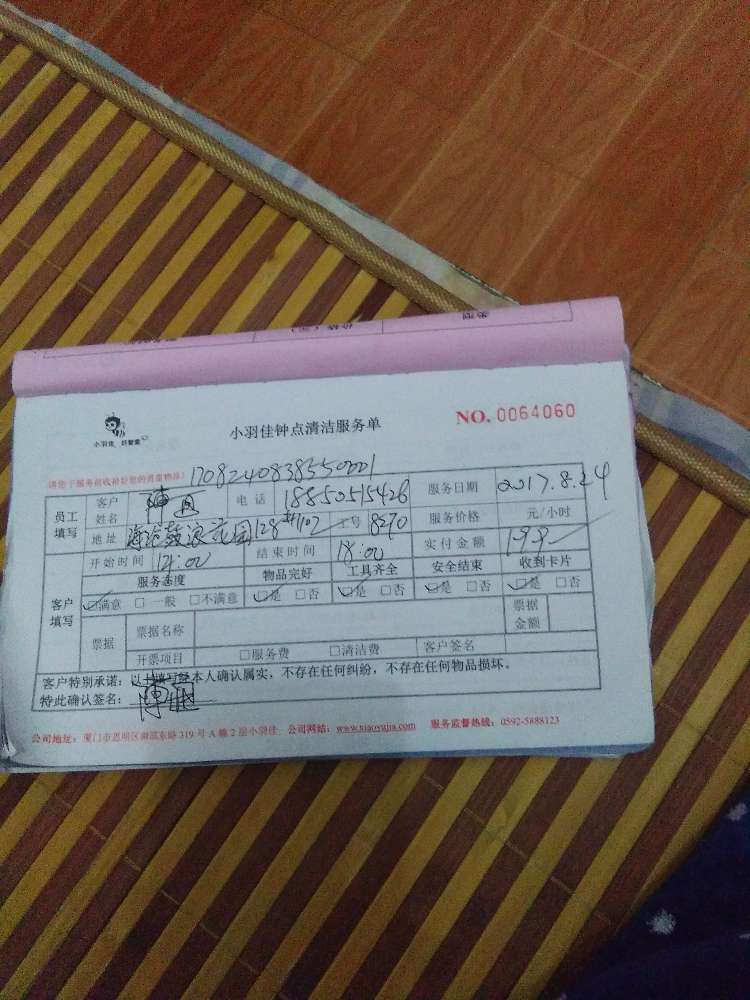 小羽佳 好管家
小羽佳钟点清洁服务单
NO. 0064060
请您于服务前收拾好您的贵重物品!
员工填写 客户姓名 电话 18850515426 服务日期 2017.8.24
地址 海沧鼓浪花园128#1102 工号 8290 服务价格 元/小时
开始时间 14:00 结束时间 18:00 实付金额
客户填写 服务态度 物品完好 工具齐全 安全结束 收到卡片
☑满意 □一般 □不满意 ☑是 □否 ☑是 □否 ☑是 □否 ☑是 □否
票据 票据名称 票据金额
开票项目 □服务费 □清洁费 客户签名
客户特别承诺:以上填写经本人确认属实,不存在任何纠纷,不存在任何物品损坏。
特此确认签名:
公司地址:厦门市思明区湖滨东路 319 号 A 幢 2 层小羽佳 公司网站:www.xiaoyujia.com 服务监督热线:0592-5888123